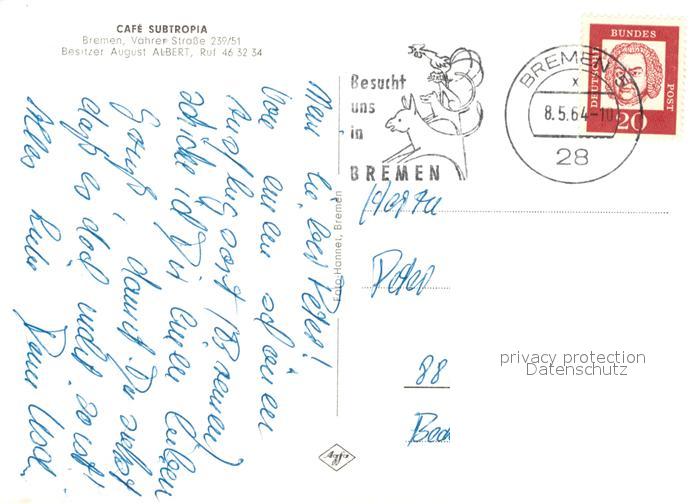 CAFÉ SUBTROPIA
Bremen, Vahrer Straße 239/51
Besitzer August ALBERT, Ruf 46 32 34
Mein lieber Peter!
Von einem schönen
Ausflugsort (Bremen)
schicke ich Dir einen lieben
Gruß damit Du selbst
daß es doch nicht so ist!
Alles Liebe Deine
Foto-Hanner, Bremen
Agfa
Besucht
uns
in
BREMEN
BREMEN 5
x
8.5.64-10
28
DEUTSCHE
BUNDES
POST
20
Herrn
Peter
88
privacy protection
Datenschutz